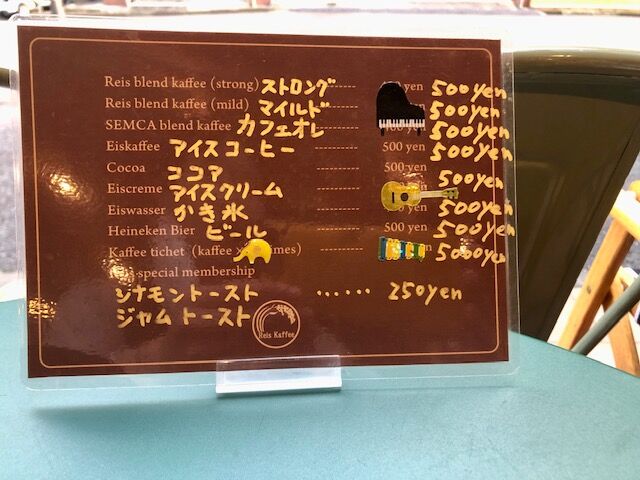 Reis blend kaffee (strong) ストロング ------ yen 500yen
Reis blend kaffee (mild) マイルド ------ yen 500yen
SEMCA blend kaffee カフェオレ ------ yen 500yen
Eiskaffee アイスコーヒー ------ 500 yen 500yen
Cocoa ココア ------ 500 yen 500yen
Eiscreme アイスクリーム ------ yen 500yen
Eiswasser かき氷 ------ yen 500yen
Heineken Bier ビール ------ 500 yen 500yen
Kaffee tichet (kaffee mes) ------ 5000yen
special membership
シナモントースト ...... 250yen
ジャムトースト
Reis Kaffee